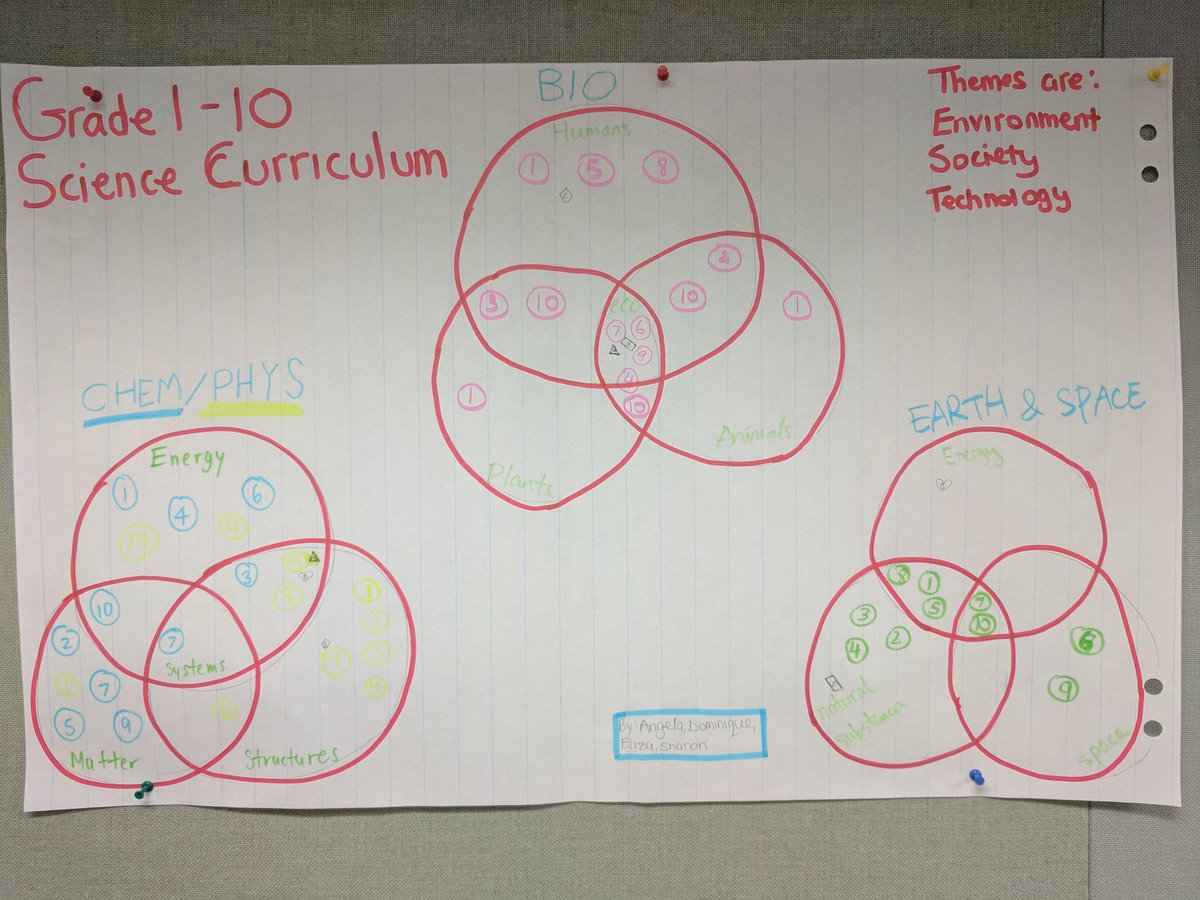 Grade 1-10
Science Curriculum
BIO
Themes are:
Environment
Society
Technology
Humans
1 5 8
2
10
1
5 10
eco
7 6
9
4
10
1
Animals
Plants
CHEM/PHYS
Energy
1
4
6
10 9
3
5
8
10
7
Systems
1
2
7 3
4
2
7
5 9
Matter
Structures
EARTH & SPACE
Energy
8 1
5
7
10
3
4 2
natural
6
9
space
By: Angela, Dominique,
Eliza, Sharon